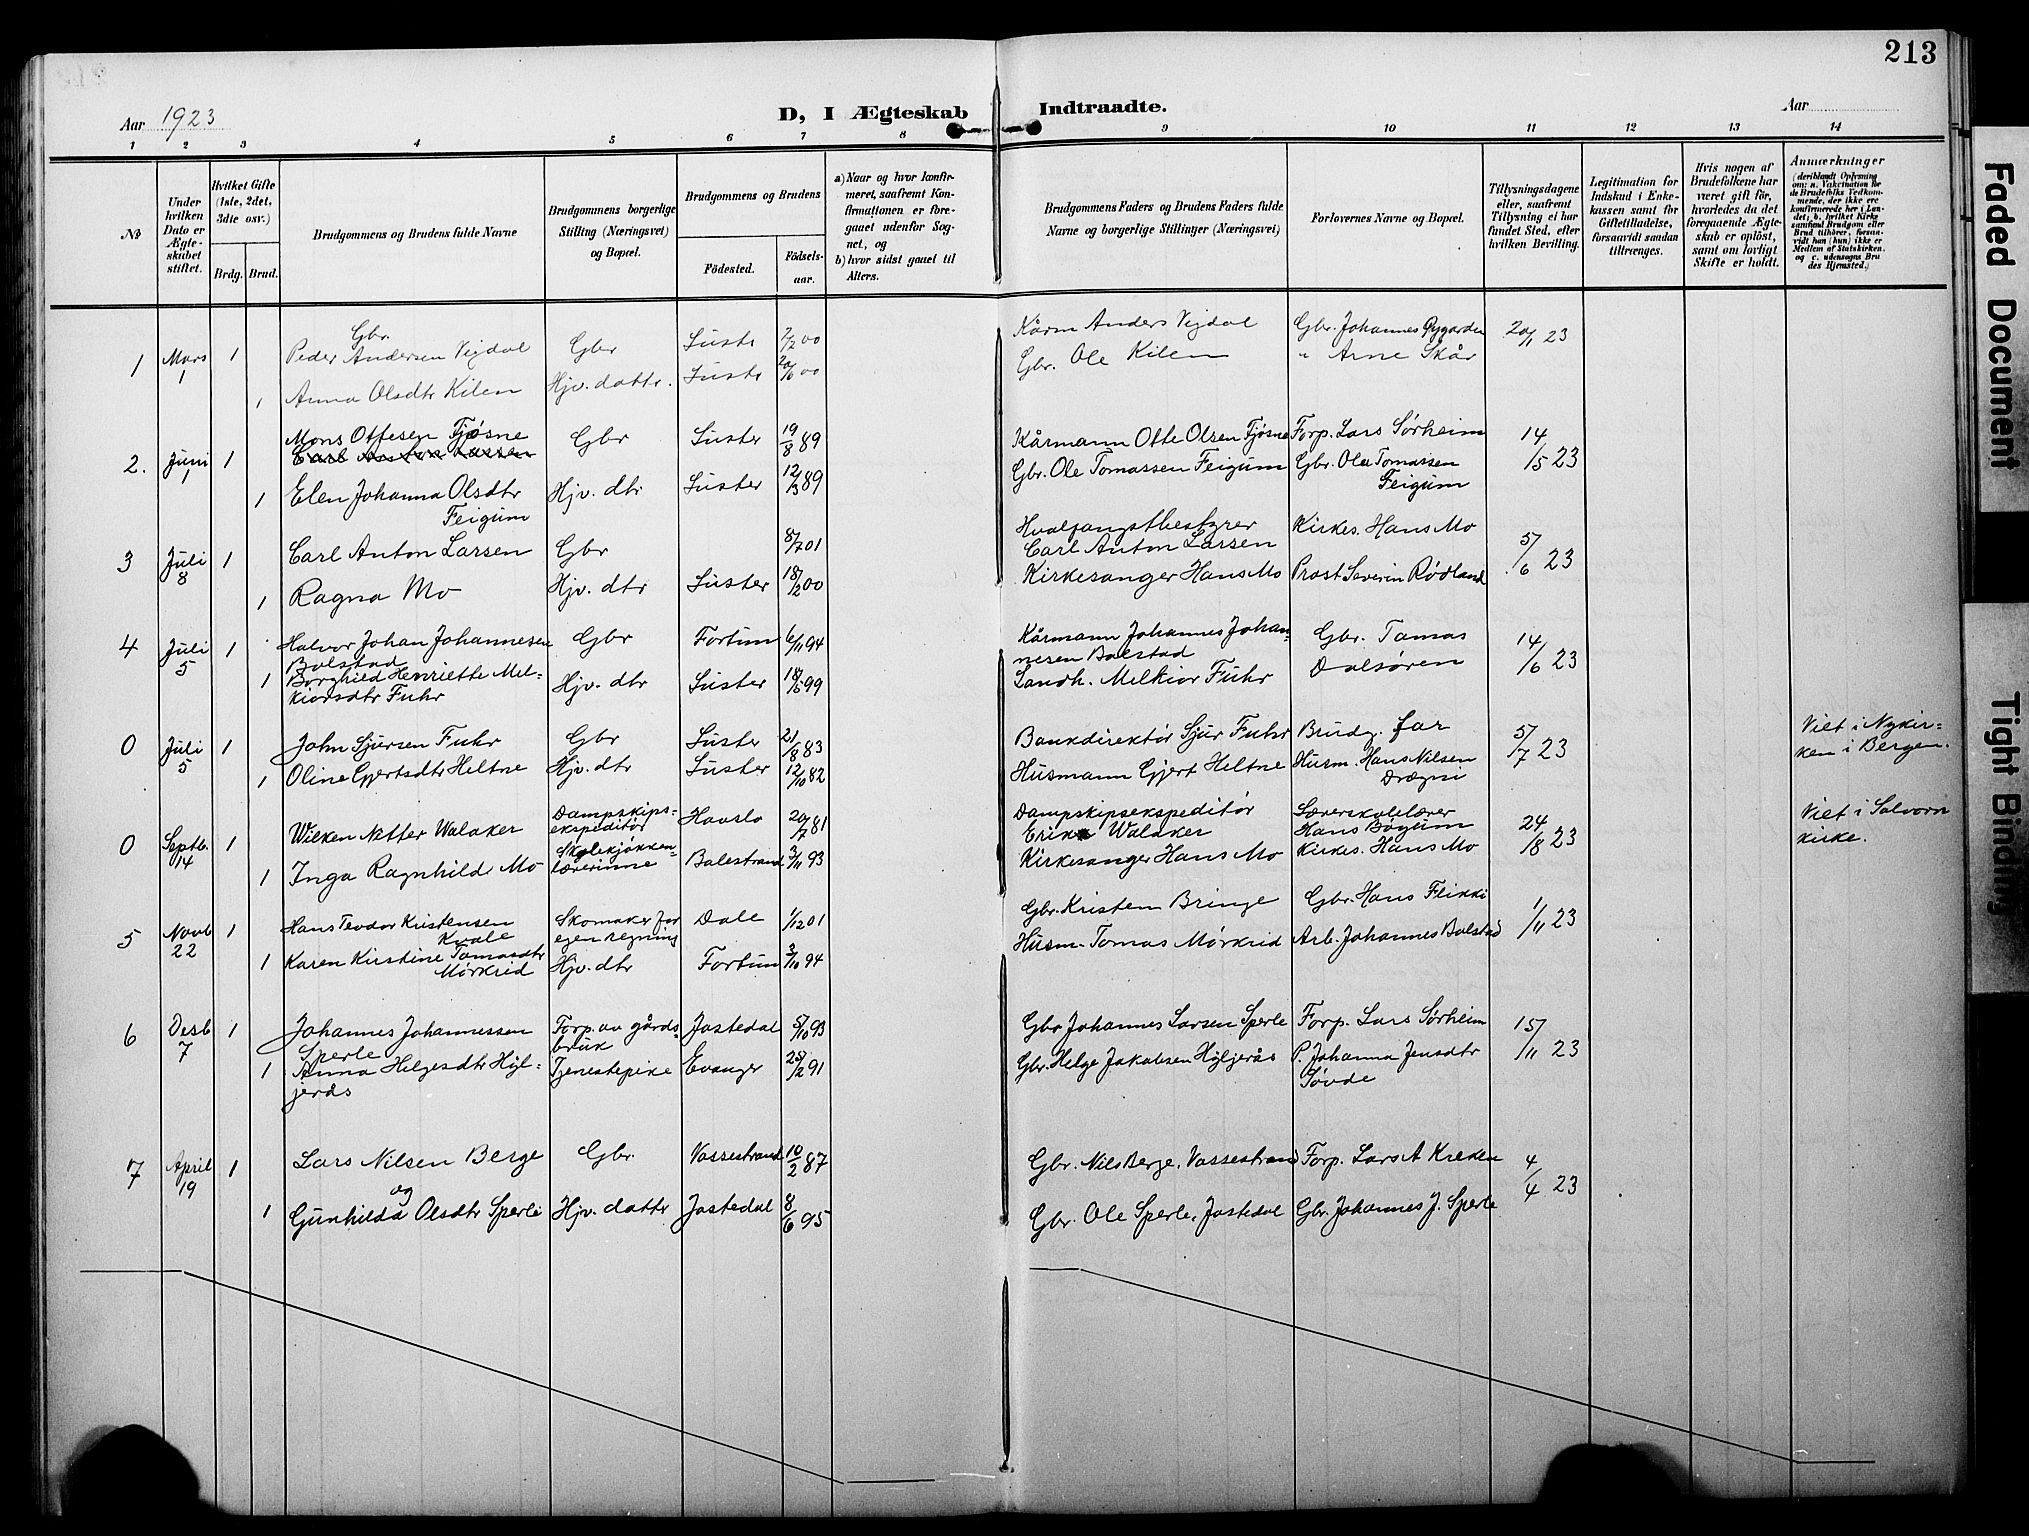 213
Aar 1923
D, I Ægteskab Indtraadte.
Aar
1 2 3 4 5 6 7 8 9 10 11 12 13 14
№
Under hvilken Dato er Ægteskabet stiftet.
Hvilket Gifte (1ste, 2det, 3die osv.)
Brdg. Brud.
Brudgommens og Brudens fulde Navne
Brudgommens borgerlige Stilling (Næringsvei) og Bopæl.
Brudgommens og Brudens
Fødested. Fødsels-aar.
a) Naar og hvor konfirmeret, saafremt Konfirmationen er foregaaet udenfor Sognet, og
b) hvor sidst gaaet til Alters.
Brudgommens Faders og Brudens Faders fulde Navne og borgerlige Stillinger (Næringsvei)
Forlovernes Navne og Bopæl.
Tillysningsdagene eller, saafremt Tillysning ei har fundet Sted, efter hvilken Bevilling.
Legitimation for Indskud i Enkekassen samt for Giftetilladelse, forsaavidt saadan tiltrænges.
Hvis nogen af Brudefolkene har været gift før, hvorledes da det foregaaende Ægteskab er opløst, samt om lovligt Skifte er holdt.
Anmærkninger
(deriblandt Oplysning om: a. Vakcination for de Brudefolks Vedkommende, der ikke ere konfirmerede her i Landet; b. hvilket Kirkesamfund Brudgom eller Brud tilhører, forsaavidt han (hun) ikke er Medlem af Statskirken, og c. udensogns Brudes Hjemsted.)
1 Mars 1 1 Gbr. Peder Andersen Vigdal Gbr Luster 7/2 00 Kårm Anders Vigdal Gbr. Johannes Øygarden 20/1 23
1 Anna Olsdtr Kilen Hjv. dattr. Luster 20/6 00 Gbr. Ole Kilen " Arne Skår
2. Juni 1 1 Mons Ottesen Fjøsne Gbr Luster 19/8 89 Kårmann Otte Olsen Fjøsne Forp. Lars Sørheim 14/5 23
Carl Anton Larsen
1 Elen Johanna Olsdtr Feigum Hjv. dtr Luster 12/3 89 Gbr. Ole Tomassen Feigum Gbr. Ole Tomassen Feigum
3 Juli 8 1 Carl Anton Larsen Gbr 8/7 01 Hvalfangstbestyrer Carl Anton Larsen Kirkes. Hans Mo 5/6 23
1 Ragna Mo Hjv. dtr Luster 18/2 00 Kirkesanger Hans Mo Prost Severin Rødland
4 Juli 5 1 Halvor Johan Johannesen Bolstad Gbr Fortun 6/11 94 Kårmann Johannes Johannesen Bolstad Gbr. Tomas Dalsøren 14/6 23
1 Borghild Henriette Melkiorsdtr Fuhr Hjv. dtr Luster 18/5 99 Landh. Melkior Fuhr
0 Juli 5 1 John Sjursen Fuhr Gbr Luster 21/8 83 Bankdirektør Sjur Fuhr Brudg. far 5/7 23 Viet i Nykirken i Bergen.
1 Oline Gjertsdtr Heltne Hjv. dtr Luster 12/10 82 Husmann Gjert Heltne Husm. Hans Nilsen Drægni
0 Septb. 14 1 Wilken Nitter Walaker Dampskipsekspeditør Hafslo 20/7 81 Dampskipsekspeditør Erik Walaker Lærerskolelærer Hans Bøgum 24/8 23 Viet i Solvorn kirke.
1 Inga Ragnhild Mo Skolekjøkkenlærerinne Balestrand 3/11 93 Kirkesanger Hans Mo Kirkes. Hans Mo
5 Novb 22 1 Hans Teodor Kristensen Kvale Skomaker for egen regning Dale 1/12 01 Gbr. Kristen Bringe Gbr. Hans Flikki 1/11 23
1 Karen Kirstine Tomasdtr Mørkrid Hjv. dtr Fortun 3/10 94 Husm. Tomas Mørkrid Arb. Johannes Bolstad
6 Desb 7 1 Johannes Johannessen Sperle Forp. av gårdsbruk Jostedal 5/10 93 Gbr Johannes Larsen Sperle Forp. Lars Sørheim 15/11 23
1 Anna Helgesdtr Hyljerås Tjenestepike Evanger 25/2 91 Gbr. Helge Jakobsen Hyljerås P. Johanna Jensdtr Søvde
7 April 19 1 Lars Nilsen Berge Gbr. Vossestrand 10/2 87 Gbr. Nils Berge, Vossestrand Forp. Lars A Kreken 4/4 23
og
1 Gunhilda Olsdtr Sperle Hjv. dattr Jostedal 8/6 95 Gbr. Ole Sperle, Jostedal Gbr. Johannes J. Sperle
Faded Document
Tight Binding